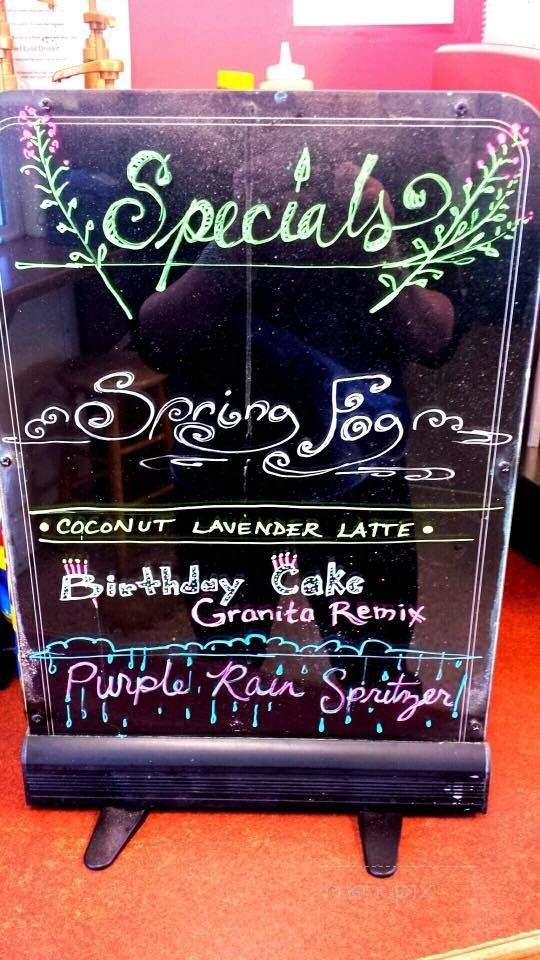 Specials
Spring Fog
• COCONUT LAVENDER LATTE •
Birthday Cake
Granita Remix
Purple Rain Spritzer!
menupix